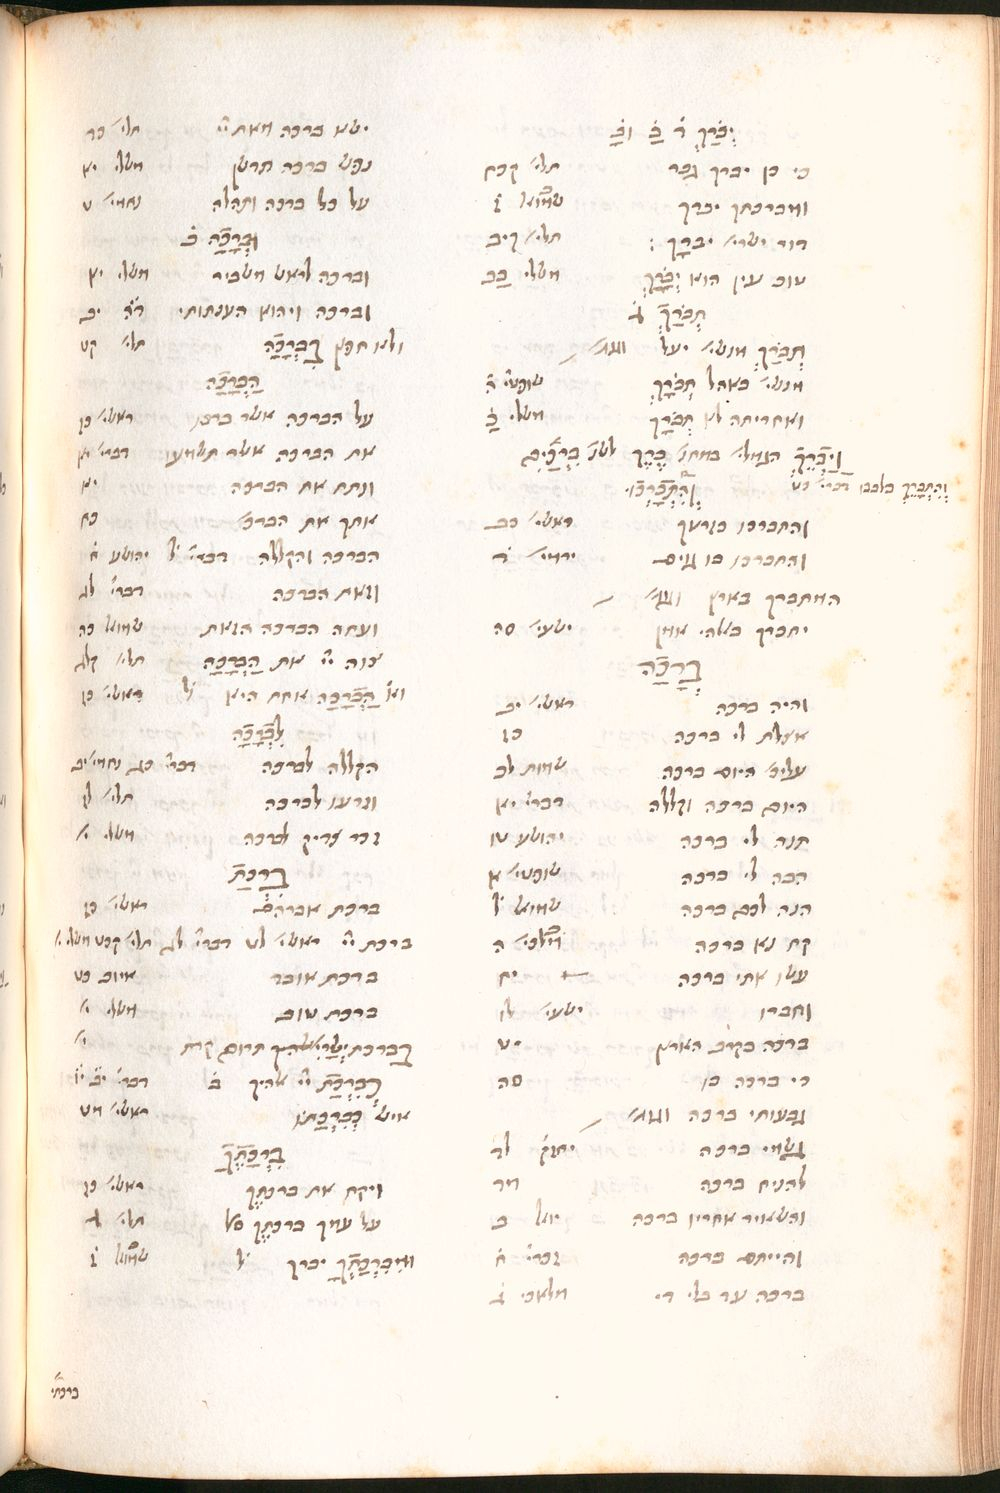 יְבֹרַךְ ד̇ ב̇ וב̇
כי כן יברך גבר תלי׳ קכח
ומברכתך יברך שמואל ז̇
דור ישרי׳ יבֹרָךְ : תלי׳ קיב
טוב עין הוא יְבֹרָךְ משלי כב
תְבֹרַךְ ג̇
תְבֹרַךְ מנשי׳ יעל וגו׳
מנשי׳ באהל תְבֹרָךְ שופטי׳ ה̇
ואחריתה לא תְבֹרָךְ משלי כ̇
וַיְבָרֶךְ הגמלי׳
והִתְבָרֵךְ בלבבו דברי׳ כט
וְהִתְבָּרְכוּ
והתברכו בזרעך ראשי׳ כב
והתברכו בו גוים ירמי׳ ד̇
המתברך בארץ וגו׳
יתברך באלהי אמן ישעי׳ סה
בְרָכָה
והיה ברכה ראשי׳ יב
אצלת לי ברכה כז
עליכם היום ברכה שמות לב
היום ברכה וקללה דברי׳ יא
תנה לי ברכה יהושע טו
הבה לי ברכה שופטי׳ א
הנה לכם ברכה שמואל ל̇
קח נא ברכה מלכי׳ ה
עשו אתי ברכה יח
וחברו ישעי׳ לו
ברכה בקרב הארץ יט
כי ברכה בו סה
גבעותי ברכה וגו׳
גשמי ברכה יחזק׳ לד
להניח ברכה מד
והשאיר אחריו ברכה יואל ב
והייתם ברכה זכרי׳ ח̇
ברכה עד בלי די מלאכי ג̇
ישא ברכה מאת יי׳ תלי׳ כד
נפש ברכה תדשן משלי יא
על כל ברכה ותהלה נחמי׳ ט
וּבְרָכָה ב̇
וברכה לראש משביר משלי יא
וברכה ויהוא הענתותי ד̇ה̇ יב
ולא חפץ בִבְרָכָה תלי׳ קט
הַבְרָכָה
על הברכה אשר ברכו ראשי׳ כז
את הברכה אשר תשמעו דברי׳ יא
ונתת את הברכה יא
אותך את הברכה כח
הברכה והקללה דברי׳ ל̇ יהושע ח̇
וזאת הברכה דברי׳ לג
ועתה הברכה הזאת שמואל כה
צוה יי׳ את הַבְרָכָה תלי׳ קלג
הַבְרָכָה אחת היא ל̇ ראשי׳ כז
לִבְרָכָה
הקללה לברכה דברי׳ כג נחמי׳ יג
וזרעו לברכה תלי׳ לז
זכר צדיק לברכה משלי י׳
בִרְכַת
ברכת אברהם ראשי׳ כח
ברכת יי׳ ראשי׳ לט דברי׳ לג תלי׳ קכט משלי י׳
ברכת אובד איוב כט
ברכת טוב
בברכת ישרים תרום קרת
כְבִרְכַת יי׳ אלהיך ב̇ דברי׳ יב יו
איש כְבִרְכָתוֹ ראשי׳ מט
בִרְכָתֶךָ
ויקח את ברכתֶךָ ראשי׳ כז
על עמך ברכתֶךָ סלה תלי׳ ג̇
וּמִבִּרְכָתְךָ יברך ל̇ שמואל ז̇
ברכתי